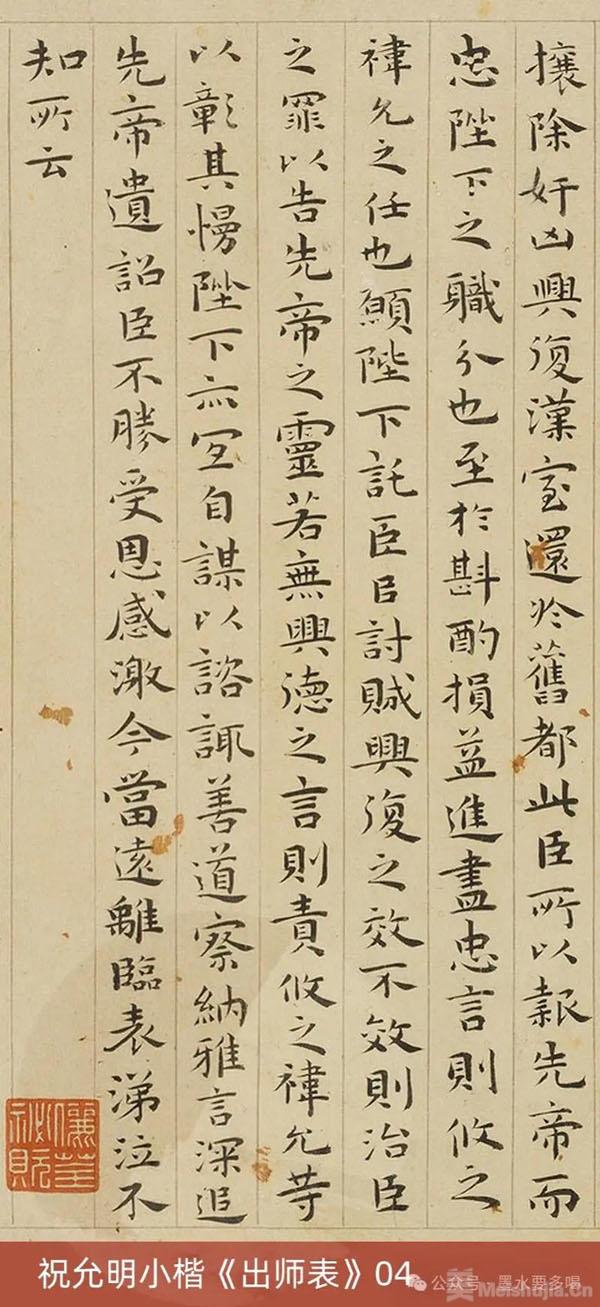 攘除奸凶興復漢室還於舊都此臣所以報先帝而
忠陛下之職分也至於斟酌損益進盡忠言則攸之
禕允之任也願陛下託臣㠯討賊興復之效不效則治臣
之罪以告先帝之靈若無興德之言則責攸之禕允等
以彰其慢陛下亦宜自謀以諮諏善道察納雅言深追
先帝遺詔臣不勝受恩感激今當遠離臨表涕泣不
知所云
祝允明小楷《出师表》04
公众号·墨水要多喝
Meishujia.Cn